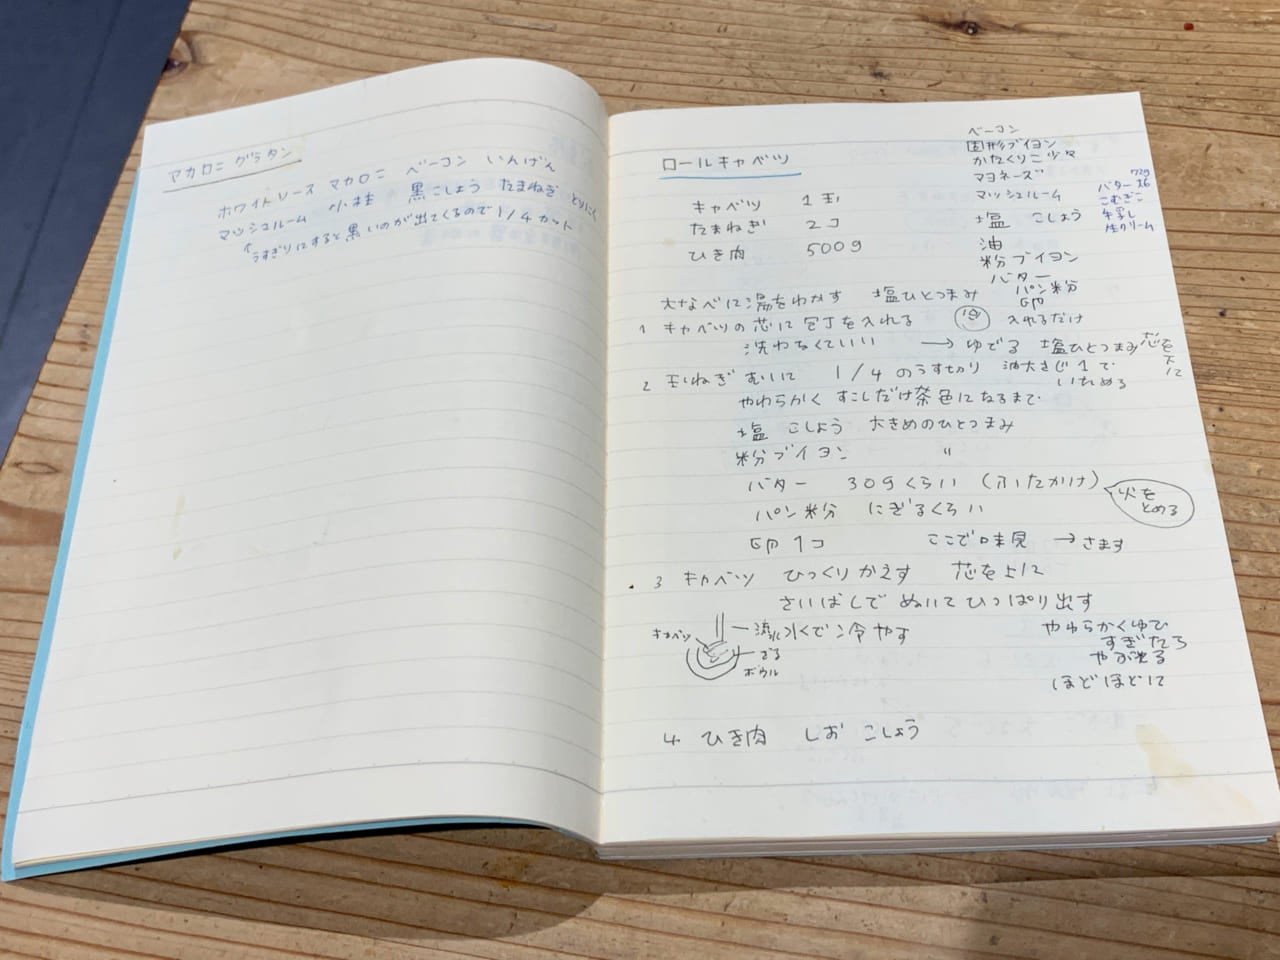 マカロニ グラタン
ホワイトソース マカロニ ベーコン いんげん
マッシュルーム 小柱 黒こしょう たまねぎ とりにく
うすぎりにすると黒いのが出てくるので 1/4カット
ロールキャベツ
キャベツ 1玉
たまねぎ 2コ
ひき肉 500g
ベーコン
固形ブイヨン
かたくりこ少々
マヨネーズ
マッシュルーム
塩 こしょう
油
粉ブイヨン
バター
パン粉
卵
バター
こむぎこ
牛乳
生クリーム
大なべに湯をわかす 塩ひとつまみ
1 キャベツの芯に包丁を入れる 入れるだけ
洗わなくていい → ゆでる 塩ひとつまみ 芯を下に
2 玉ねぎ 1/4 のうす切り 油大さじ1で
いためる
やわらかく すこしだけ茶色になるまで
塩 こしょう 大きめのひとつまみ
粉ブイヨン 〃
バター 30gくらい (ふたかけ)
火を
とめる
パン粉 にぎるくらい
卵1コ ここで味見 → さます
3 キャベツ ひっくりかえす 芯を上に
さいばしで ぬいてひっぱり出す
キャベツ
流水で冷やす
ざる
ボウル
やわらかくゆで
すぎたら
やぶれる
ほどほどに
4 ひき肉 しお こしょう